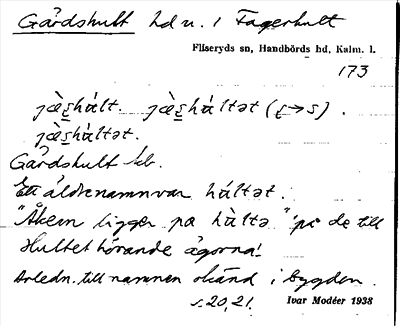 Gårdshult hd u. i Fagerhult
Fliseryds sn, Handbörds hd, Kalm. l.
173
jàs̱hált jàs̱háltət (ṣ→s).
jàs̱háltət.
Gårdshult kb.
Ett äldre namn var háltət.
"Åkern ligger pa hàltə" på de till
Hultet hörande ägorna!
Anledn. till namnen okänd i bygden.
s. 20, 21. Ivar Modéer 1938